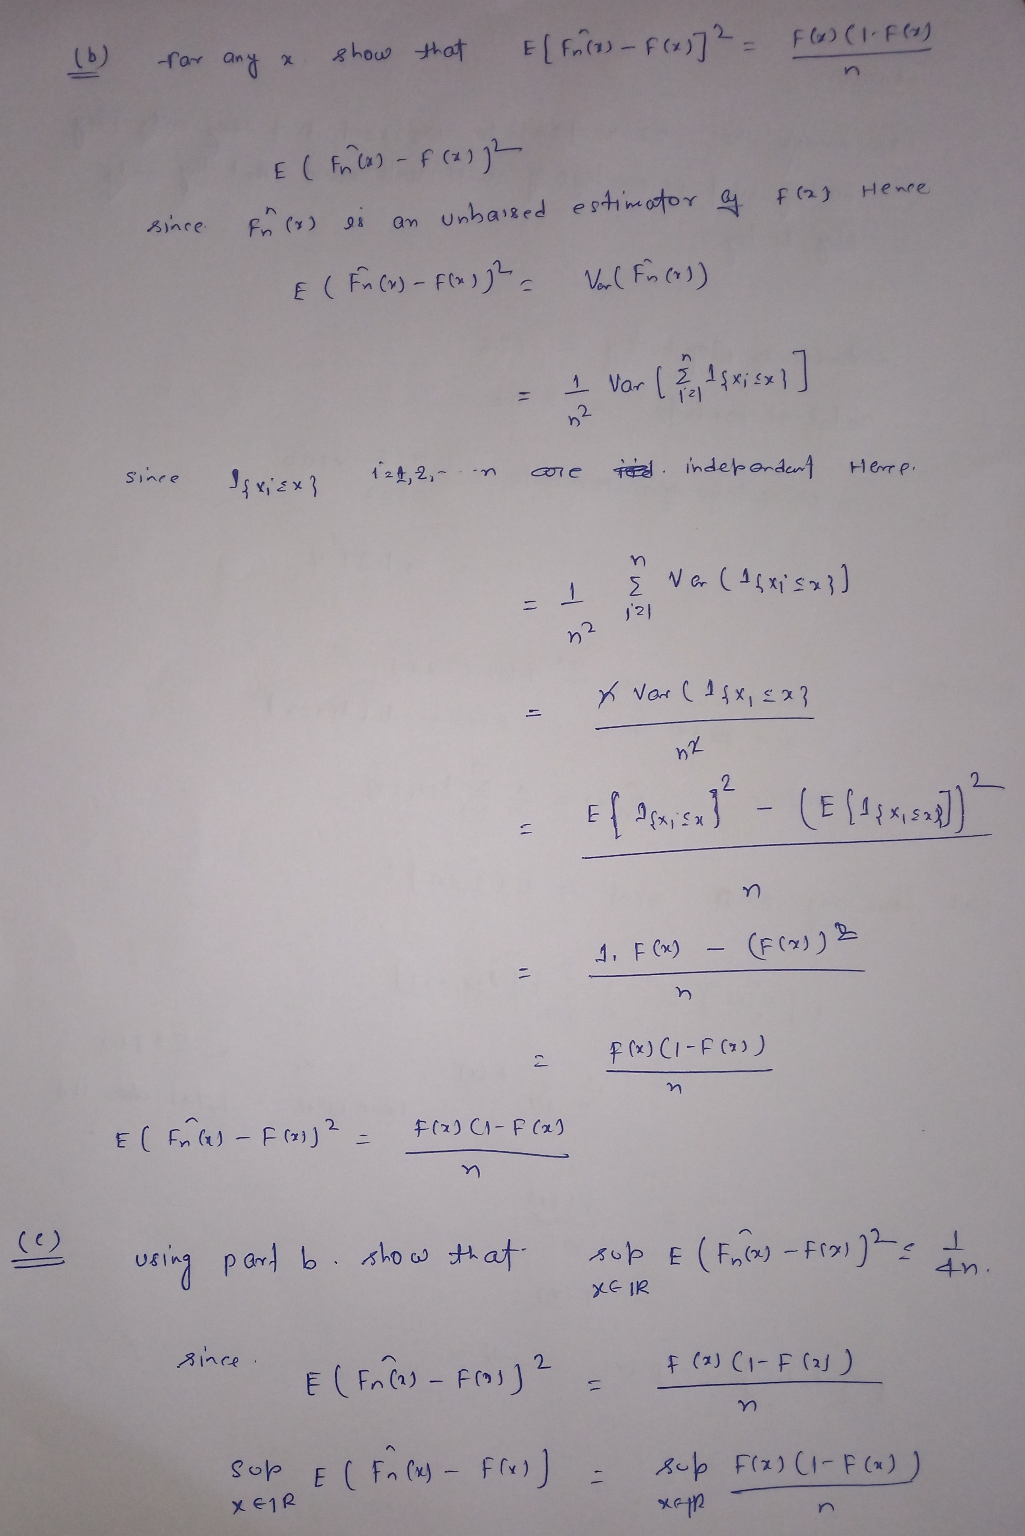 (b) for any x show that E[F̂n(x) - F(x)]² = F(x)(1-F(x)) / n
E(F̂n(x) - F(x))²
since F̂n(x) is an unbaised estimator of F(x) Hence
E(F̂n(x) - F(x))² = Var(F̂n(x))
= 1/n² Var[Σ_{i=1}^{n} 1{xi≤x}]
since 1{xi≤x} i=1,2,...n are independent Hence.
= 1/n² Σ_{i=1}^{n} Var(1{xi≤x})
= n Var(1{x1≤x} / n²
= E{1{x1≤x}² - (E{1{x1≤x}])² / n
= 1.F(x) - (F(x))² / n
= F(x)(1-F(x)) / n
E(F̂n(x) - F(x))² = F(x)(1-F(x) / n
(c) using part b. show that sup_{x∈IR} E(F̂n(x) - F(x))² ≤ 1/4n.
since. E(F̂n(x) - F(x))² = F(x)(1-F(x)) / n
sup_{x∈IR} E(F̂n(x) - F(x)) = sup_{x∈IR} F(x)(1-F(x)) / n